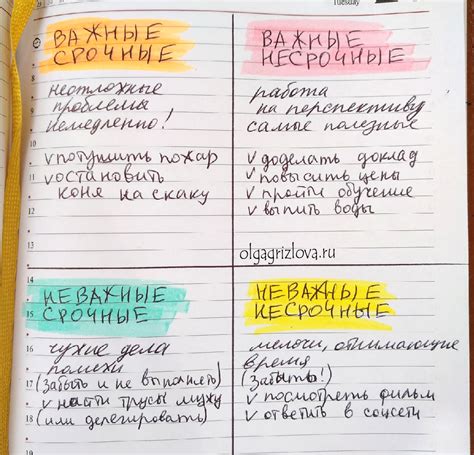 Tuesday
ВАЖНЫЕ
СРОЧНЫЕ
8
неотложные
9
проблемы
немедленно!
10
v потушить пожар
11
v остановить
коня на скаку
12
13
ВАЖНЫЕ
НЕСРОЧНЫЕ
работа
на перспективу
самые полезные
v доделать доклад
v повысить цены
v пройти обучение
v выпить воды
olgagrizlova.ru
14
НЕВАЖНЫЕ
15
СРОЧНЫЕ
16
чужие дела
помехи
17
(забыть и не выполнять)
v найти трусы мужу
18
(или делегировать)
НЕВАЖНЫЕ
НЕСРОЧНЫЕ
мелочи, отнимающие
время
(забыть!)
v посмотреть фильм
v ответить в соцсети